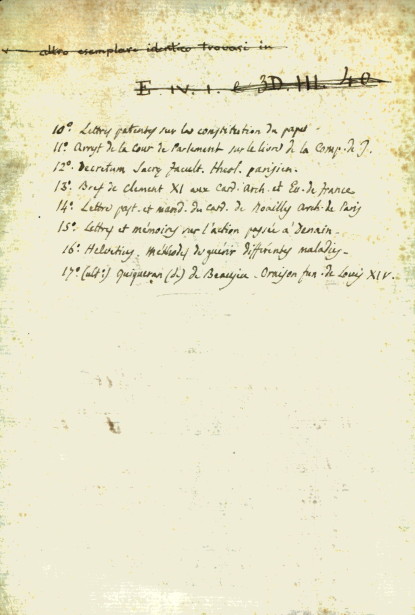 altro esemplare identico trovasi in
E IV. 1. e 3D. III. 40
10° Lettres patentes sur la constitution du pape.
11° Arrest de la Cour de Parlement sur le livre de la Comp. de J.
12° Decretum Sacrę Facult. Theol. parisien.
13° Bref de Clement XI aux Card. Arch. et Ev. de france
14° Lettre past. et mand. du Card. de Noailles Arch. de Paris
15° Lettres et mémoires sur l'action passée a Denain.
16° Helvetius. Méthodes de guérir différentes maladies.
17° (ult°) Quiqueran (de) de Beaujeu. Oraison fun. de Louis XIV.